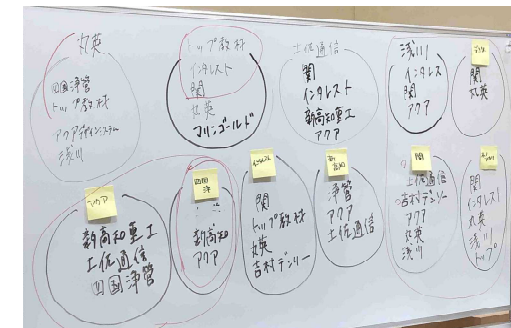 丸英
四国浄管
トップ教材
アクアデザインシステム
浅川
トップ教材
インタレスト
関
丸英
マリンゴールド
土佐通信
関
インタレスト
新高知重工
アクア
浅川
インタレス
関
アクア
関
丸英
アクア
新高知重工
土佐通信
四国浄管
四国
浄
新高知
アクア
関
トップ教材
丸英
吉村デンリー
浄管
アクア
土佐通信
関
土佐通信
吉村デンリー
アクア
丸英
浅川
関
インタレスト
丸英
浅川
トップ